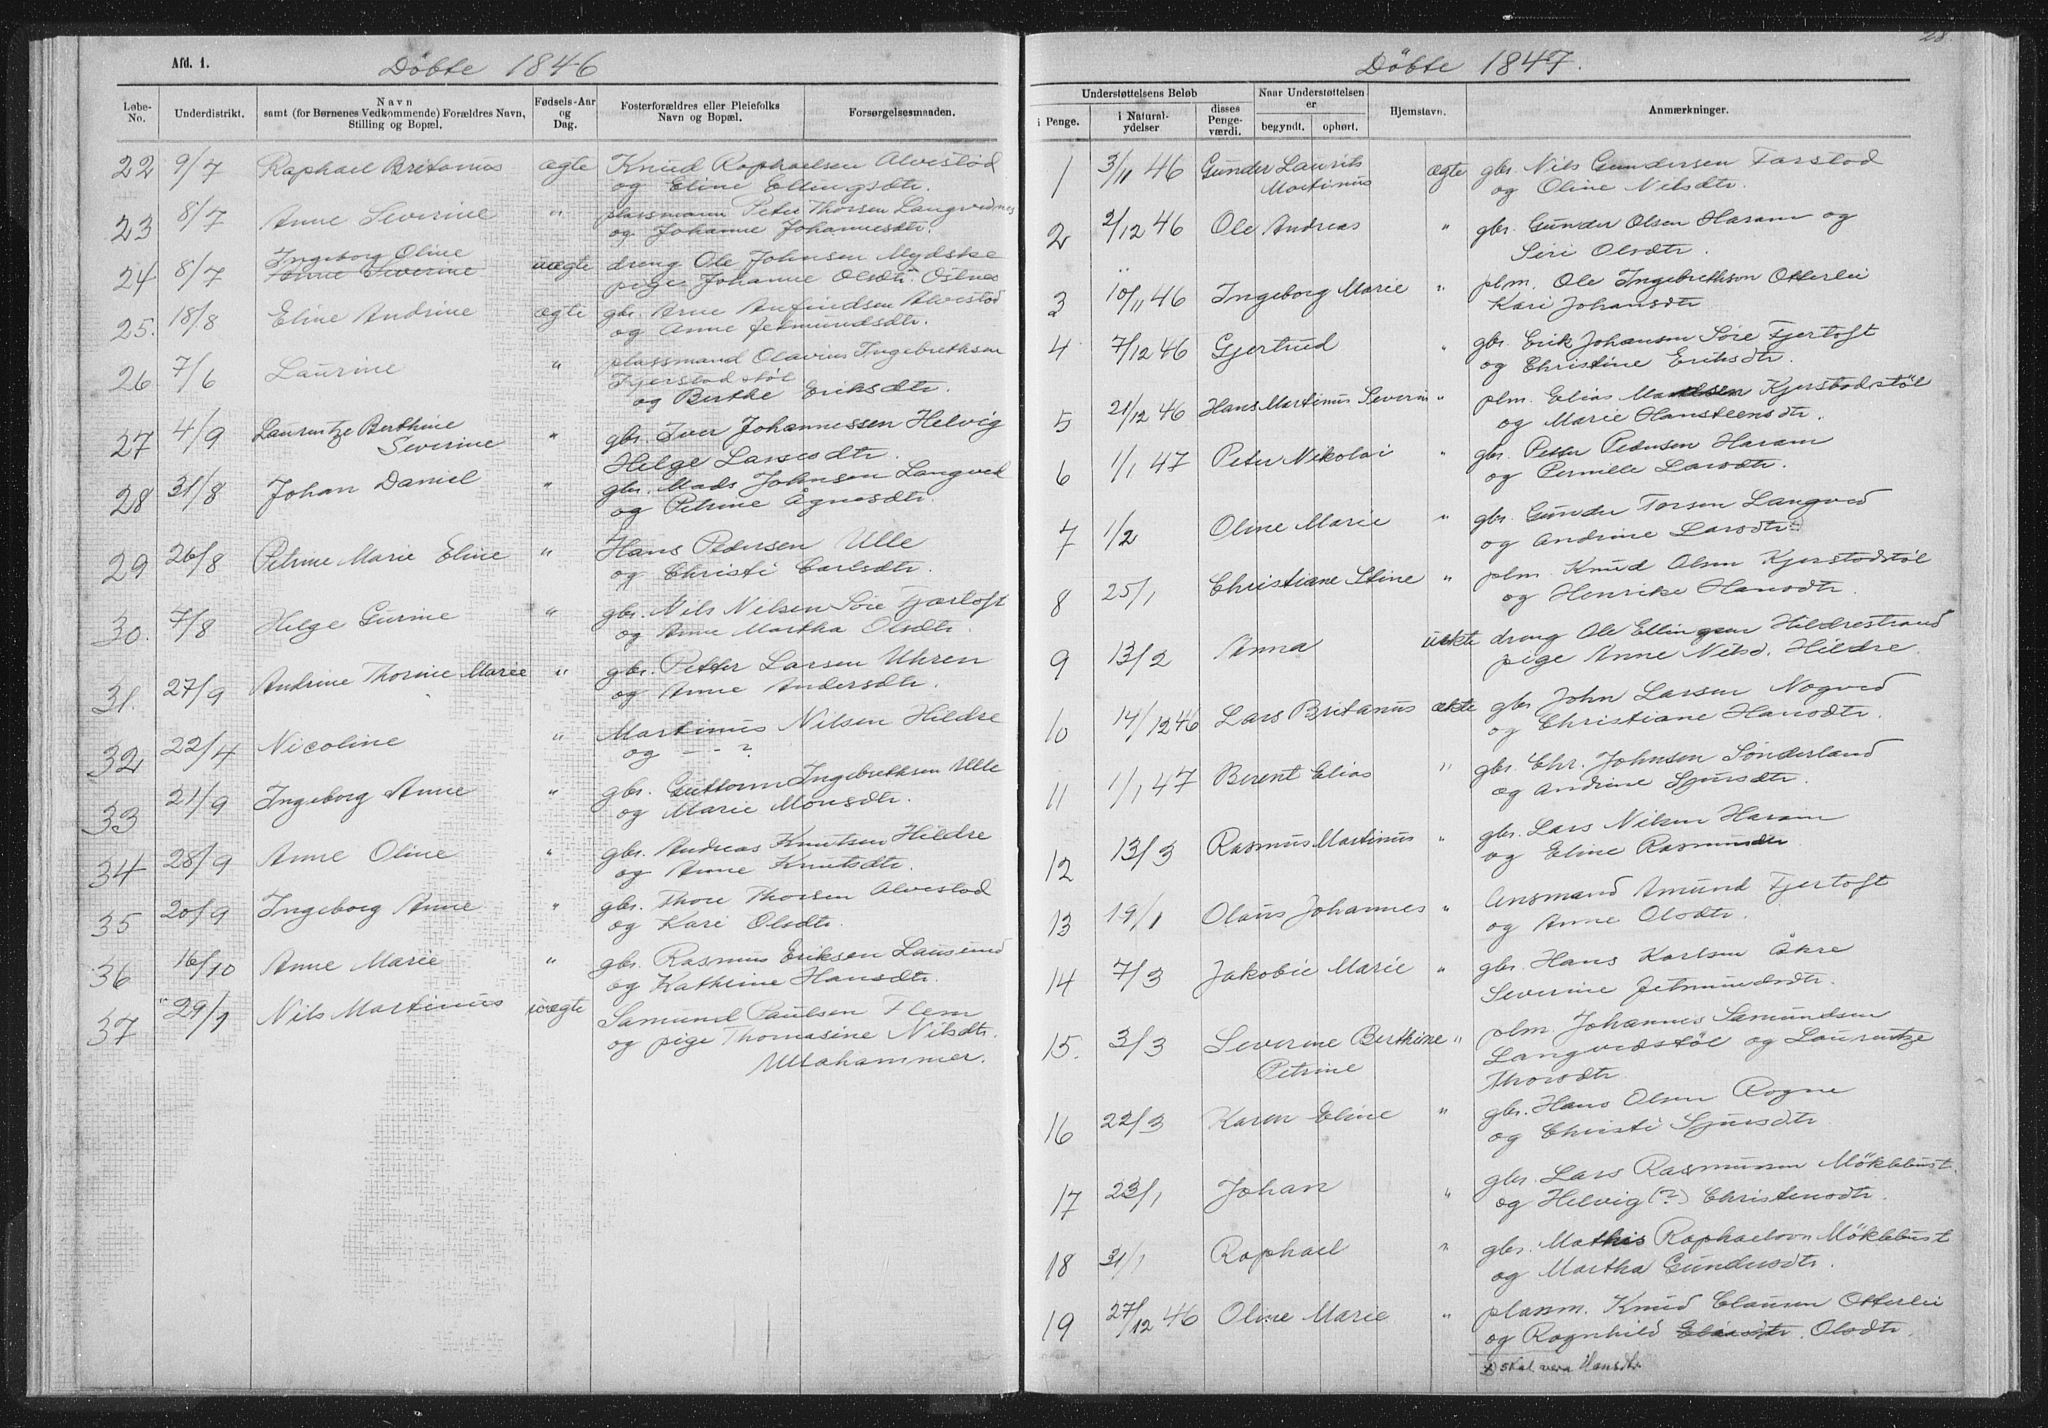 Afd. 1.
Döbte 1846
Løbe-No.
Underdistrikt.
Navn
samt (for Børnenes Vedkommende) Forældres Navn,
Stilling og Bopæl.
Fødsels-Aar
og
Dag.
Fosterforældres eller Pleiefolks
Navn og Bopæl.
Forsørgelsesmaaden.
22 9/7 Raphael Britanus ægte Knud Raphaelsen Alvestad
og Eline Ellingsdtr.
23 8/7 Anne Severine " plassmann Peter Thorsen Langvednes
og Johanne Johannesdtr.
Ingeborg Oline
24 8/7 Anne Severine uægte dreng Ole Johnsen Mydske
pige Johanne Olsdtr. Osnes
25. 18/8 Eline Andrine ægte gbr. Arne Anfindsen Alvestad
og Anne Jetmundsdtr.
26 7/6 Laurine " plassmand Olavius Ingebrethsen
Kjerstadstöl
og Berthe Eriksdtr.
27 4/9 Laurentze Berthine
Severine " gbr. Iver Johannessen Helvig
Helge Larsesdtr.
28 31/8 Johan Daniel " gbr. Mads Johnsen Langved
og Petrine Ågnesdtr.
29 26/8 Petrine Marie Eline " Hans Pedersen Ulle
og Christi Carlsdtr.
30. 7/8 Helge Gurine " gbr. Nils Nilsen Söre Fjærtoft
og Anne Martha Olsdtr.
31. 27/9 Andrine Thorine Marie " gbr. Petter Larsen Uhren
og Anne Andersdtr.
32 22/4 Nicoline " Martinus Nilsen Hildre
og - - ?
33 21/9 Ingeborg Anne " gbr. Guttorm Ingebrethsen Ulle
og Marie Monsdtr.
34 28/9 Anne Oline " gbr. Andreas Knutsen Hildre
og Anne Knutsdtr.
35 20/9 Ingeborg Anne " gbr. Thore Thorsen Alvestad
og Kari Olsdtr.
36 16/10 Anne Marie " gbr. Rasmus Eriksen Lausund
og Kathrine Hansdtr.
37 29/1 Nils Martinus uægte Samund Paulsen Flem
og pige Thomasine Nilsdtr.
Ullahammer.
28.
Döbte 1847.
Understøttelsens Beløb
i Penge.
i Natural-
ydelser
disses
Penge-
værdi.
Naar Understøttelsen
er
begyndt. ophørt.
Hjemstavn.
Anmærkninger.
1 3/11 46 Gunder Laurits
Martinus ægte gbr. Nils Gundersen Farstad
og Oline Nilsdtr.
2 2/12 46 Ole Andreas " gbr. Gunder Olsen Haram og
Siri Olsdtr.
3 10/11 46 Ingeborg Marie " plm. Ole Ingebrethsen Otterlei
Kari Johansdtr
4 7/12 46 Gjertrud " gbr. Erik Johansen Söre Fjertoft
og Christine Eriksdtr.
5 21/12 46 Hans Martinus Severin " plm. Elias Madsen Kjerstadstöl
og Marie Hansteensdtr.
6 1/1 47 Peter Nikolai " gbr. Petter Pedersen Haram
og Pernille Larsdtr.
7 1/2 Oline Marie " gbr. Gunder Torsen Langved
og Andrine Larsdtr.
8 25/1 Christiane Stine " plm. Knud Olsen Kjerstadstöl
og Henrike Hansdtr.
9 13/2 Anna uekte dreng Ole Ellingsen Hildrestrand
pige Anne Nilsd. Hildre
10 14/12 46 Lars Britanus ekte gbr John Larsen Nogved
og Christiane Hansdtr.
11 1/1 47 Berent Elias " gbr. Chr. Johnsen Sönderland
og Andrine Sjursdtr.
12 13/3 Rasmus Martinus " gbr. Lars Nilsen Haram
og Eline Rasmusdtr
13 19/1 Olaus Johannes " Ansmand Amund Fjertoft
og Anne Olsdtr.
14 7/3 Jakobie Marie " gbr. Hans Karlsen Åkre
Severine Jetmundsdtr.
15. 3/3 Severine Berthine
Petrine " plm. Johannes Samundsen
Langvedstöl og Laurentze
Thorsdtr.
16 22/3 Karen Eline " gbr. Hans Olsen Rogne
og Christi Sjursdtr
17 23/1 Johan " gbr. Lars Rasmussen Möklebust.
og Helvig (?) Christensdtr.
18 31/1 Raphael " gbr. Mathis Raphaelsen Möklebust
og Martha Gundersdtr.
19 27/12 46 Oline Marie " plassm. Knud Clausen Otterlei
og Ragnhild Eliasdtr. Olsdtr.
x) skal vera Hansdtr.